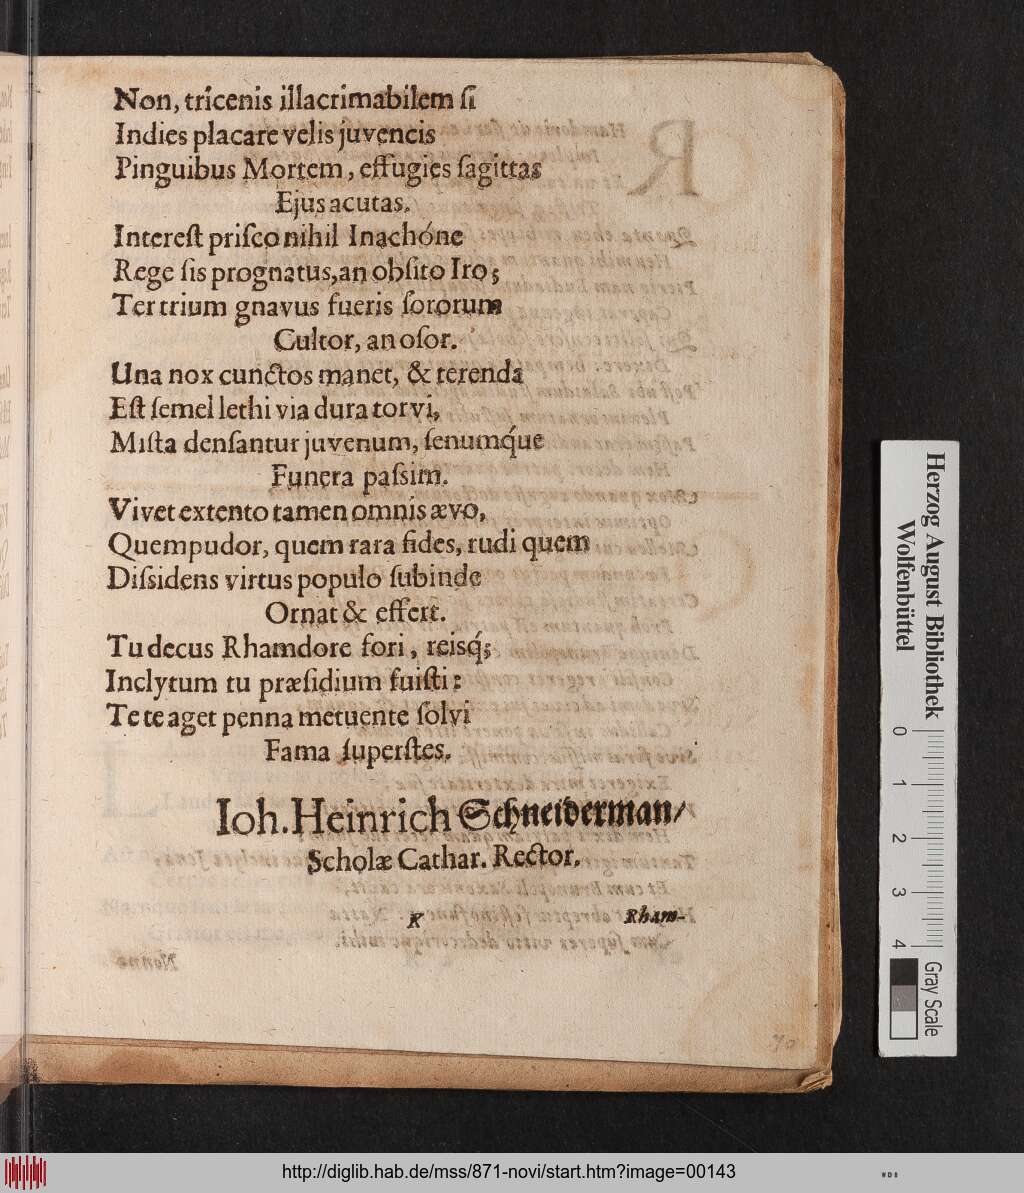 Non, trícenis illacrimabilem ſi
Indies placare velis juvencis
Pinguibus Mortem, effugies ſagittas
Ejus acutas.
Intereſt priſco nihil Inachóne
Rege ſis prognatus, an obſito Iro;
Ter trium gnavus fueris ſororum
Cultor, an oſor.
Una nox cunctos manet, & terenda
Eſt ſemel lethi via dura torvi,
Miſta denſantur juvenum, ſenumq́ue
Funera paſsim.
Vivet extento tamen omnis ævo,
Quem pudor, quem rara fides, rudi quem
Diſsidens virtus populo ſubinde
Ornat & effert.
Tu decus Rhamdore fori, reisq́;
Inclytum tu præſidium fuiſti:
Te te aget penna metuente ſolvi
Fama ſuperſtes.
Ioh. Heinrich Schneiderman/
Scholæ Cathar. Rector.
K
Rham-
70
Herzog August Bibliothek
Wolfenbüttel
0 1 2 3 4
Gray Scale
http://diglib.hab.de/mss/871-novi/start.htm?image=00143
WDB